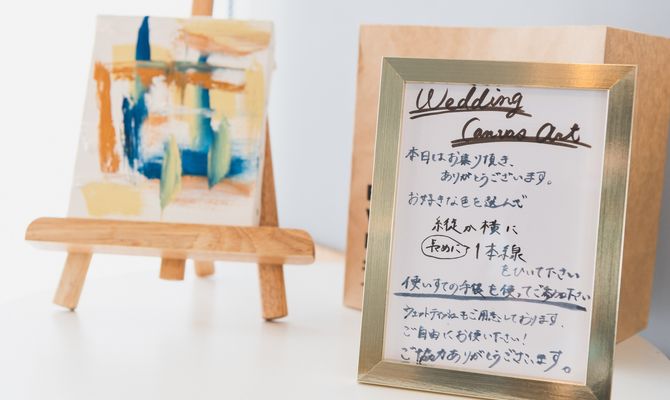 Wedding
Canvas Art
本日はお集り頂き、
ありがとうございます。
お好きな色を選んで
縦か横に
長めに 1本線
をひいて下さい
使いすての手袋を使ってご参加下さい
ウェットティッシュもご用意しております。
ご自由にお使いください!
ご協力ありがとうございます。